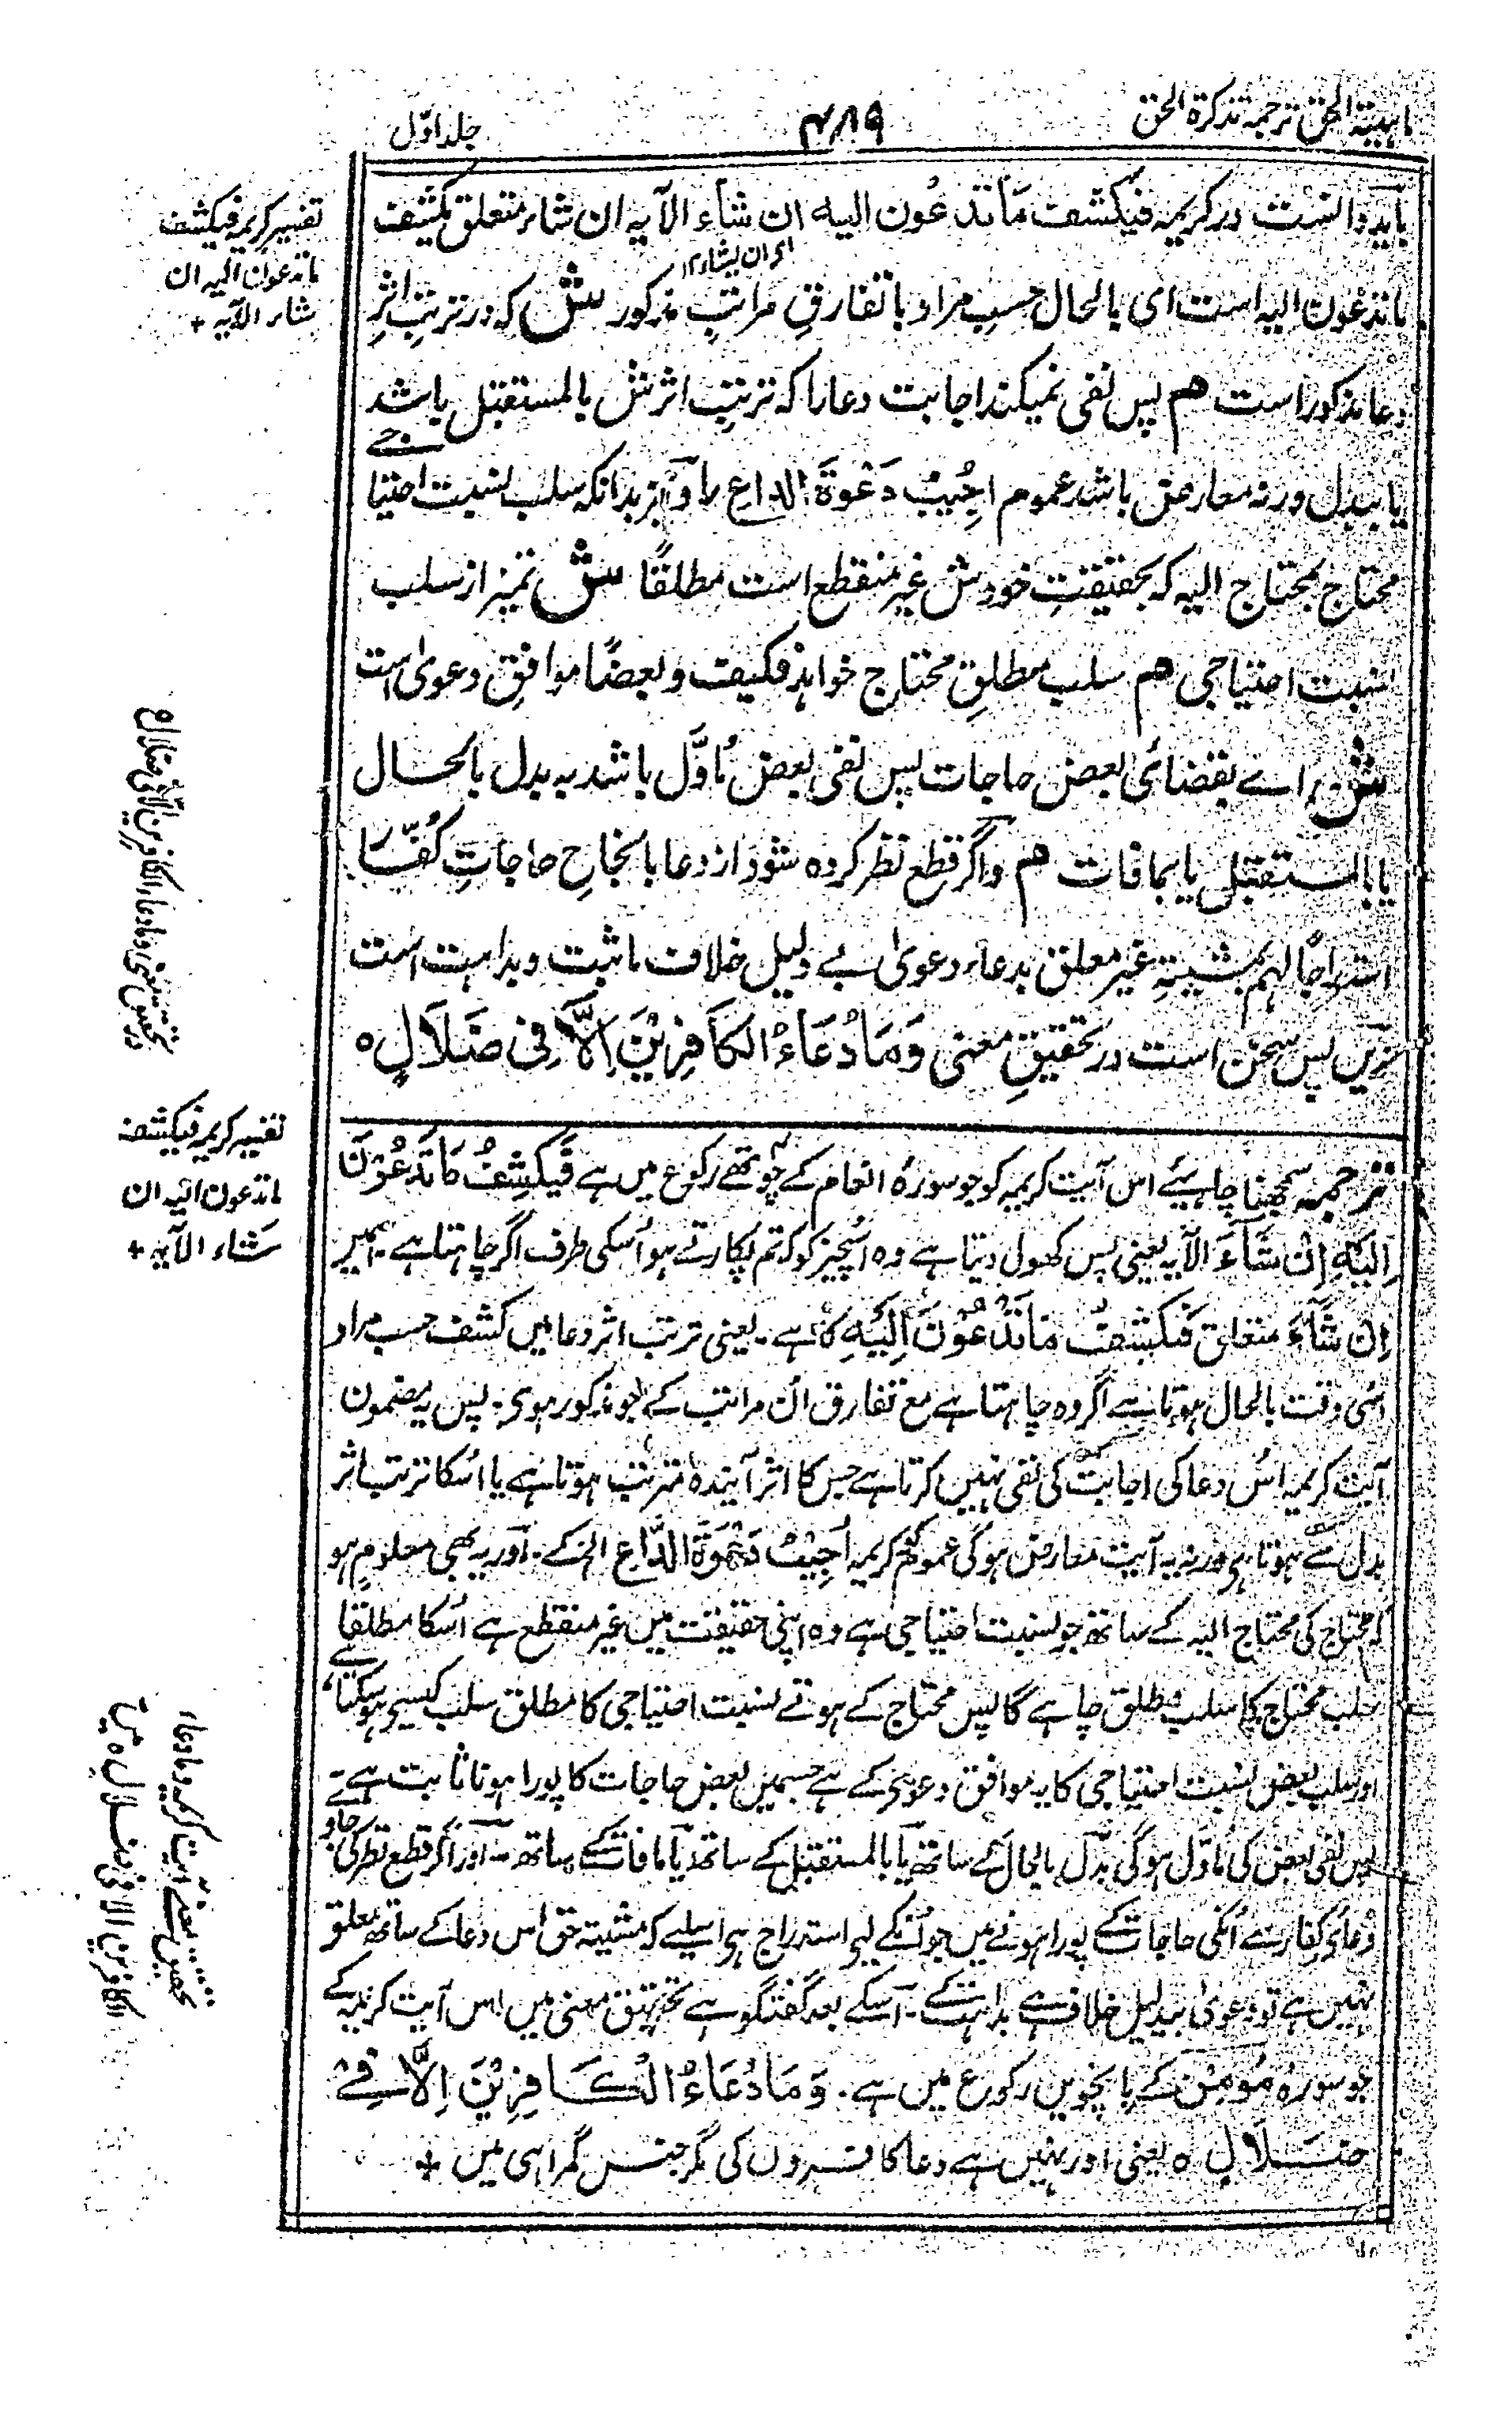 ماہیتہ الحق ترجمہ تذکرۃ الحق
۴۸۹
جلد اوّل
باید دانست در کریمہ فیکشف مَا تدعُون الیہ ان شآء الآیہ ان شاء متعلق یکشف
ای ان یشاء ۱۲
ما تدعُون الیہ است ای بالحال حسبِ مراد با تفارقِ مراتبِ مذکور ش کہ در ترتبِ اثرِ
دعا مذکور است هم پس نفی نمیکند اجابت دعا را کہ ترتبِ اثرش بالمستقبل باشد
یا ببدل ورنہ معارض باشد عموم اُجِیبُ دَعْوَۃَ الداعِ را و نیز بدانکہ سلب نسبت احتیاجے
محتاج بمحتاج الیہ کہ بحقیقتِ خودش غیر منقطع است مطلقًا ش نیز از سلب
نسبت احتیاجی هم سلب مطلقِ محتاج خواہد فکیف و بعضًا موافقِ دعویٰ است
ش اے بقضائی بعض حاجات پس نفی بعض مُاوَّل باشد بہ بدل بالحال
یا بالمستقبل یا بمافات هم و اگر قطع نظر کردہ شود از دعا بانجاحِ حاجاتِ کُفّار
استدراجًا لہم بمشیتہِ غیر معلق بدعاء دعویٰ بے دلیل خلاف ما ثبت و بداہت است
زیں پس سخن است در تحقیقِ معنی وَمَا دُعَاءُ الکَافِرِیْنَ اِلَّا فِی ضَلَالٍ ہ
تفسیر کریمہ فیکشف
ما تدعون الیہ ان
شاء الآیہ +
تحقیق معنی وما دعاء الکافرین الا فی ضلال
ترجمہ سمجھنا چاہیئے اس آیت کریمہ کو جو سورۂ انعام کے چوتھے رکوع میں ہے فَیَکْشِفُ مَا تَدْعُوْنَ
اِلَیْہِ اِنْ شَآءَ الآیہ یعنی پس کھول دیتا ہے وہ اُسچیز کو کہ تم پکارتے ہو اُسکی طرف اگر چاہتا ہے۔ اسمیں
اِن شَآءَ متعلق فیَکْشِفُ مَا تَدْعُوْنَ اِلَیْہِ کا ہے۔ یعنی ترتب اثر دعا میں کشف حسب مراد
اُسی وقت بالحال ہوتا ہے اگر وہ چاہتا ہے مع تفارق اُن مراتب کے جو مذکور ہوئے۔ پس یہ مضمون
آیت کریمہ اُس دعا کی اجابت کی نفی نہیں کرتا ہے جس کا اثر آیندہ مترتب ہوتا ہے یا اُسکا ترتب اثر
بدل سے ہوتا ہی ورنہ یہ آیت معارض ہوگی عموم کریمہ اُجِیْبُ دَعْوَۃَ الدَّاعِ الخ کے۔ اور یہ بھی معلوم ہو
کہ محتاج کی محتاج الیہ کے ساتھ جو نسبت احتیاجی ہے وہ اپنی حقیقت میں غیر منقطع ہے اُسکا مطلقا
سلب محتاج کا سلب مطلق چاہے گا پس محتاج کے ہوتے نسبت احتیاجی کا مطلق سلب کیسے ہو سکتا ہے
اور سلب بعض نسبت احتیاجی کا یہ موافق دعویٰ کے ہے جسمیں بعض حاجات کا پورا ہونا ثابت ہے
پس نفی بعض کی ماوّل ہوگی بدل بالحال کے ساتھ یا بالمستقبل کے ساتھ یا مافات کے ساتھ۔ اور اگر قطع نظر کی جاوے
دعائے کفار سے اُنکی حاجات کے پورا ہونے میں جو اُنکے لیے استدراج ہی اسلیے کہ مشیتہ حق اس دعا کے ساتھ معلق
نہیں ہے تو دعویٰ بیدلیل خلاف ہے بداہت کے۔ اسکے بعد گفتگو ہے تحقیق معنی میں اس آیت کریمہ کے
جو سورۂ مُومِن کے پانچویں رکوع میں ہے۔ وَمَا دُعَاءُ الْکَافِرِیْنَ اِلَّا فِیْ
ضَلَالٍ ہ یعنی اور نہیں ہے دعا کافروں کی مگر جنس گمراہی میں +
تفسیر کریمہ فیکشف
ما تدعون الیہ ان
شاء الآیہ +
تحقیق معنے آیت کریمہ وما دعاء
الکافرین الا فی ضلال